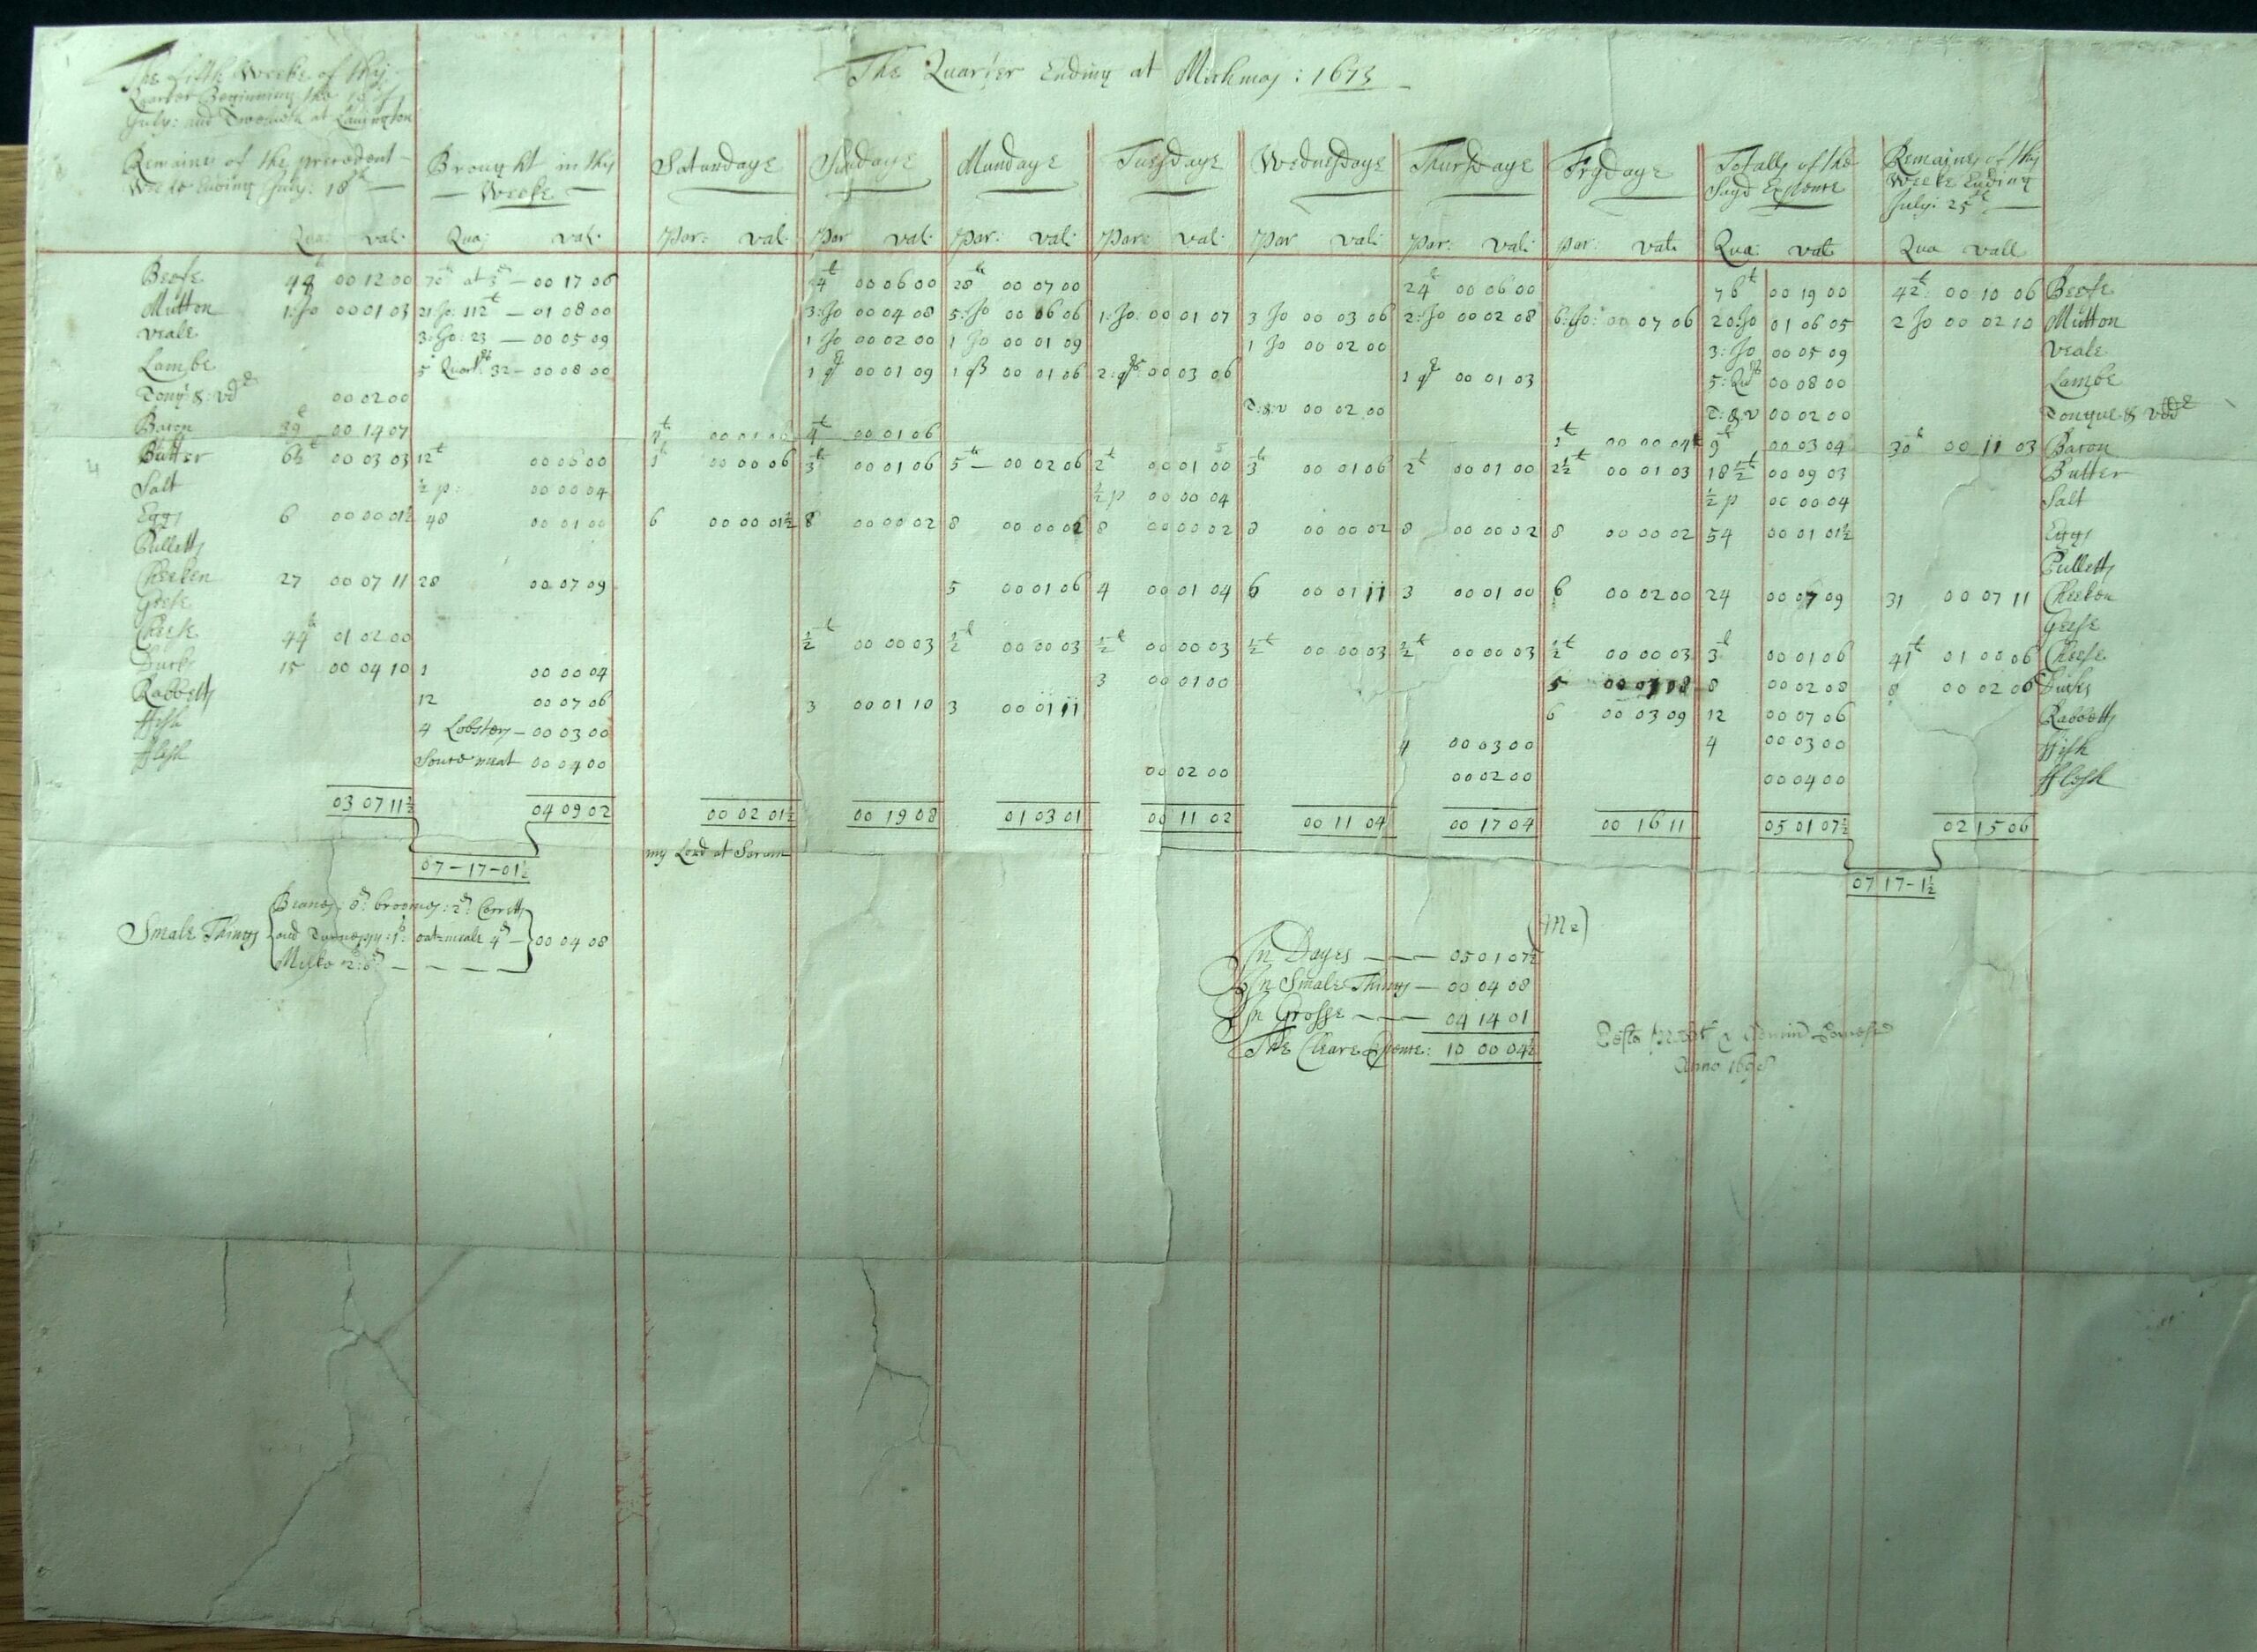 The Quarter Ending at Michmas : 1673
The fifth Weeke of this
Quarter Beginning the 19th
July: and Twentieth at
Remaines of the precedent
Weeke Ending July: 18th
Brought in this
Weeke
Saturdaye
Sundaye
Mundaye
Tuesdaye
Wednesdaye
Thursdaye
Frydaye
Totalls of the
Sayd Expence
Remaynes of this
Weeke Ending
July: 25th
Qua: val: Qua: val: Par: val: Par val: Par: val: Par: val: Par val: Par: val: par: val: Qua: val: Qua vall
Beefe 48 00 12 00 70 at 3d — 00 17 06 24 00 06 00 28 00 07 00 24 00 06 00 76 00 19 00 42 00 10 06 Beefe
Mutton 1:Jo 00 01 03 21:Jo: 112 — 01 08 00 3:Jo 00 04 08 5:Jo 00 06 06 1:Jo: 00 01 07 3 Jo 00 03 06 2:Jo 00 02 08 6:Jo: 00 07 06 20:Jo 01 06 05 2 Jo 00 02 10 Mutton
Veale 3:Jo: 23 — 00 05 09 1 Jo 00 02 00 1 Jo 00 01 09 1 Jo 00 02 00 3:Jo 00 05 09 Veale
Lambe 5 Quart: 32 — 00 08 00 1 qr 00 01 09 1 qr 00 01 06 2:qrs: 00 03 06 1 qr 00 01 03 5:Qrs 00 08 00 Lambe
Tong: & vdd 00 02 00 T:&:v 00 02 00 T:&:v 00 02 00 Tongue & vdd
Bacon 39 00 14 07 4 00 01 06 4 00 01 06 1 00 00 04 9 00 03 04 30 00 11 03 Bacon
Butter 6½ 00 03 03 12 00 06 00 1 00 00 06 3 00 01 06 5 — 00 02 06 2 00 01 00 3 00 01 06 2 00 01 00 2½ 00 01 03 18½ 00 09 03 Butter
Salt ½ p: 00 00 04 ½ p 00 00 04 ½ p 00 00 04 Salt
Eggs 6 00 00 01½ 48 00 01 00 6 00 00 01½ 8 00 00 02 8 00 00 02 8 00 00 02 8 00 00 02 8 00 00 02 8 00 00 02 54 00 01 01½ Eggs
Pulletts Pulletts
Cheeken 27 00 07 11 28 00 07 09 5 00 01 06 4 00 01 04 6 00 01 11 3 00 01 00 6 00 02 00 24 00 07 09 31 00 07 11 Cheeken
Geese Geese
Cheese 44 01 02 00 ½ 00 00 03 ½ 00 00 03 ½ 00 00 03 ½ 00 00 03 ½ 00 00 03 ½ 00 00 03 3 00 01 06 41 01 00 06 Cheese
Ducks 15 00 04 10 1 00 00 04 3 00 01 00 5 00 01 08 8 00 02 08 8 00 02 06 Ducks
Rabbetts 12 00 07 06 3 00 01 10 3 00 01 11 6 00 03 09 12 00 07 06 Rabbetts
ffish 4 Lobsters — 00 03 00 4 00 03 00 4 00 03 00 ffish
fflesh 00 04 00 00 02 00 00 02 00 00 04 00 fflesh
03 07 11½ 04 09 02 00 02 01½ 00 19 08 01 03 01 00 11 02 00 11 04 00 17 04 00 16 11 05 01 07½ 02 15 06
my Lord at Sarum
07 – 17 – 01½
07 17 – 1½
Smale Things
Beanes: 8d: broomes: 2d: Carretts
and Turneps: 1s: oatemeale 4d — 00 04 08
Milke 2:6d — — — —
In Dayes — — 05 01 07½
In Smale Things — 00 04 08
In Grosse — — 04 14 01
The Cleare Expence: 10 00 04½